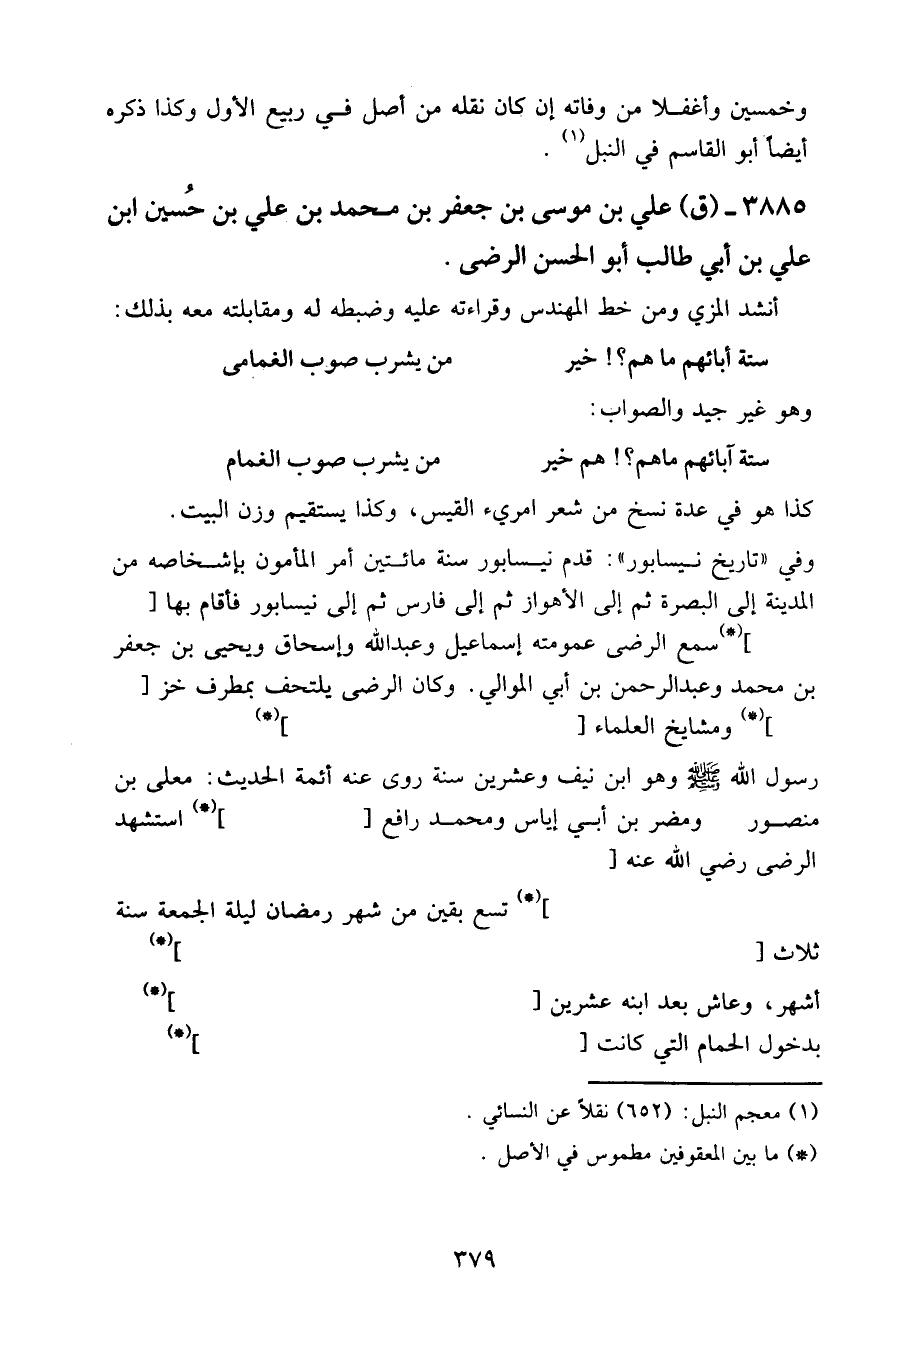 وخمسين وأغفلا من وفاته إن كان نقله من أصل في ربيع الأول وكذا ذكره
أيضاً أبو القاسم في النبل(١) .
٣٨٨٥ ـ (ق) علي بن موسى بن جعفر بن محمد بن علي بن حُسين ابن
علي بن أبي طالب أبو الحسن الرضى .
أنشد المزي ومن خط المهندس وقراءته عليه وضبطه له ومقابلته معه بذلك:
ستة أبائهم ما هم؟! خير من يشرب صوب الغمامى
وهو غير جيد والصواب:
ستة آبائهم ماهم؟! هم خير من يشرب صوب الغمام
كذا هو في عدة نسخ من شعر امريء القيس، وكذا يستقيم وزن البيت.
وفي «تاريخ نيسابور»: قدم نيسابور سنة مائتين أمر المأمون بإشخاصه من
المدينة إلى البصرة ثم إلى الأهواز ثم إلى فارس ثم إلى نيسابور فأقام بها [
](*)سمع الرضى عمومته إسماعيل وعبدالله وإسحاق ويحيى بن جعفر
بن محمد وعبدالرحمن بن أبي الموالي. وكان الرضى يلتحف بمطرف خز [
](*) ومشايخ العلماء [ ](*)
رسول الله ﷺ وهو ابن نيف وعشرين سنة روى عنه أئمة الحديث: معلى بن
منصور ومضر بن أبي إياس ومحمد رافع [ ](*) استشهد
الرضى رضي الله عنه [
](*) تسع بقين من شهر رمضان ليلة الجمعة سنة
ثلاث [ ](*)
أشهر، وعاش بعد ابنه عشرين [ ](*)
بدخول الحمام التي كانت [ ](*)
(١) معجم النبل: (٦٥٢) نقلاً عن النسائي .
(*) ما بين المعقوفين مطموس في الأصل .
٣٧٩